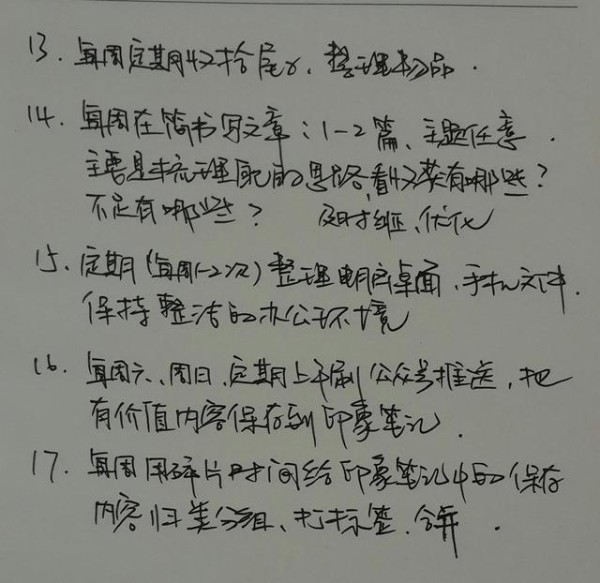 13. 每周定期收拾屋子、整理物品.
14. 每周在简书写文章:1-2篇、主题任意.
主要是梳理自己的思路,看收获有哪些?
不足有哪些? 及时纠正、优化
15. 定期(每周1-2次)整理电脑桌面、手机文件.
保持整洁的办公环境
16. 每周六、周日,定期上午刷公众号推送,把
有价值内容保存到印象笔记.
17. 每周用碎片时间给印象笔记中的保存
内容归类分组、打标签,合并.